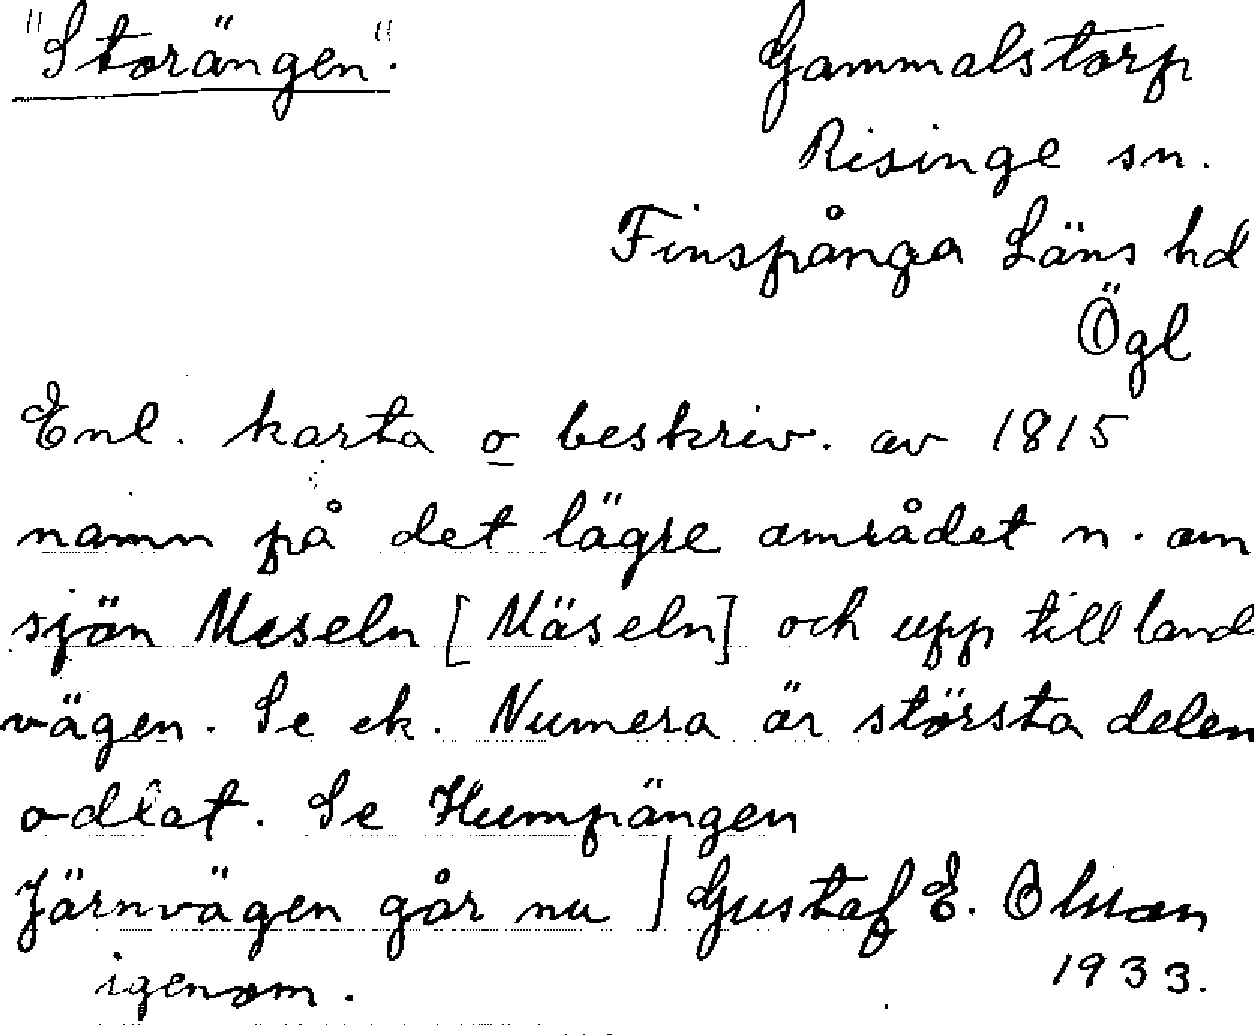 "Storängen".
Gammalstorp
Risinge sn.
Finspånga Läns hd
Ögl
Enl. karta o beskriv. av 1815
namn på det lägre området n. om
sjön Meseln [Mäseln] och upp till land
vägen. Se ek. Numera är största delen
odlat. Se Humpängen
Järnvägen går nu | Gustaf E. Olsson
igenom.
1933.